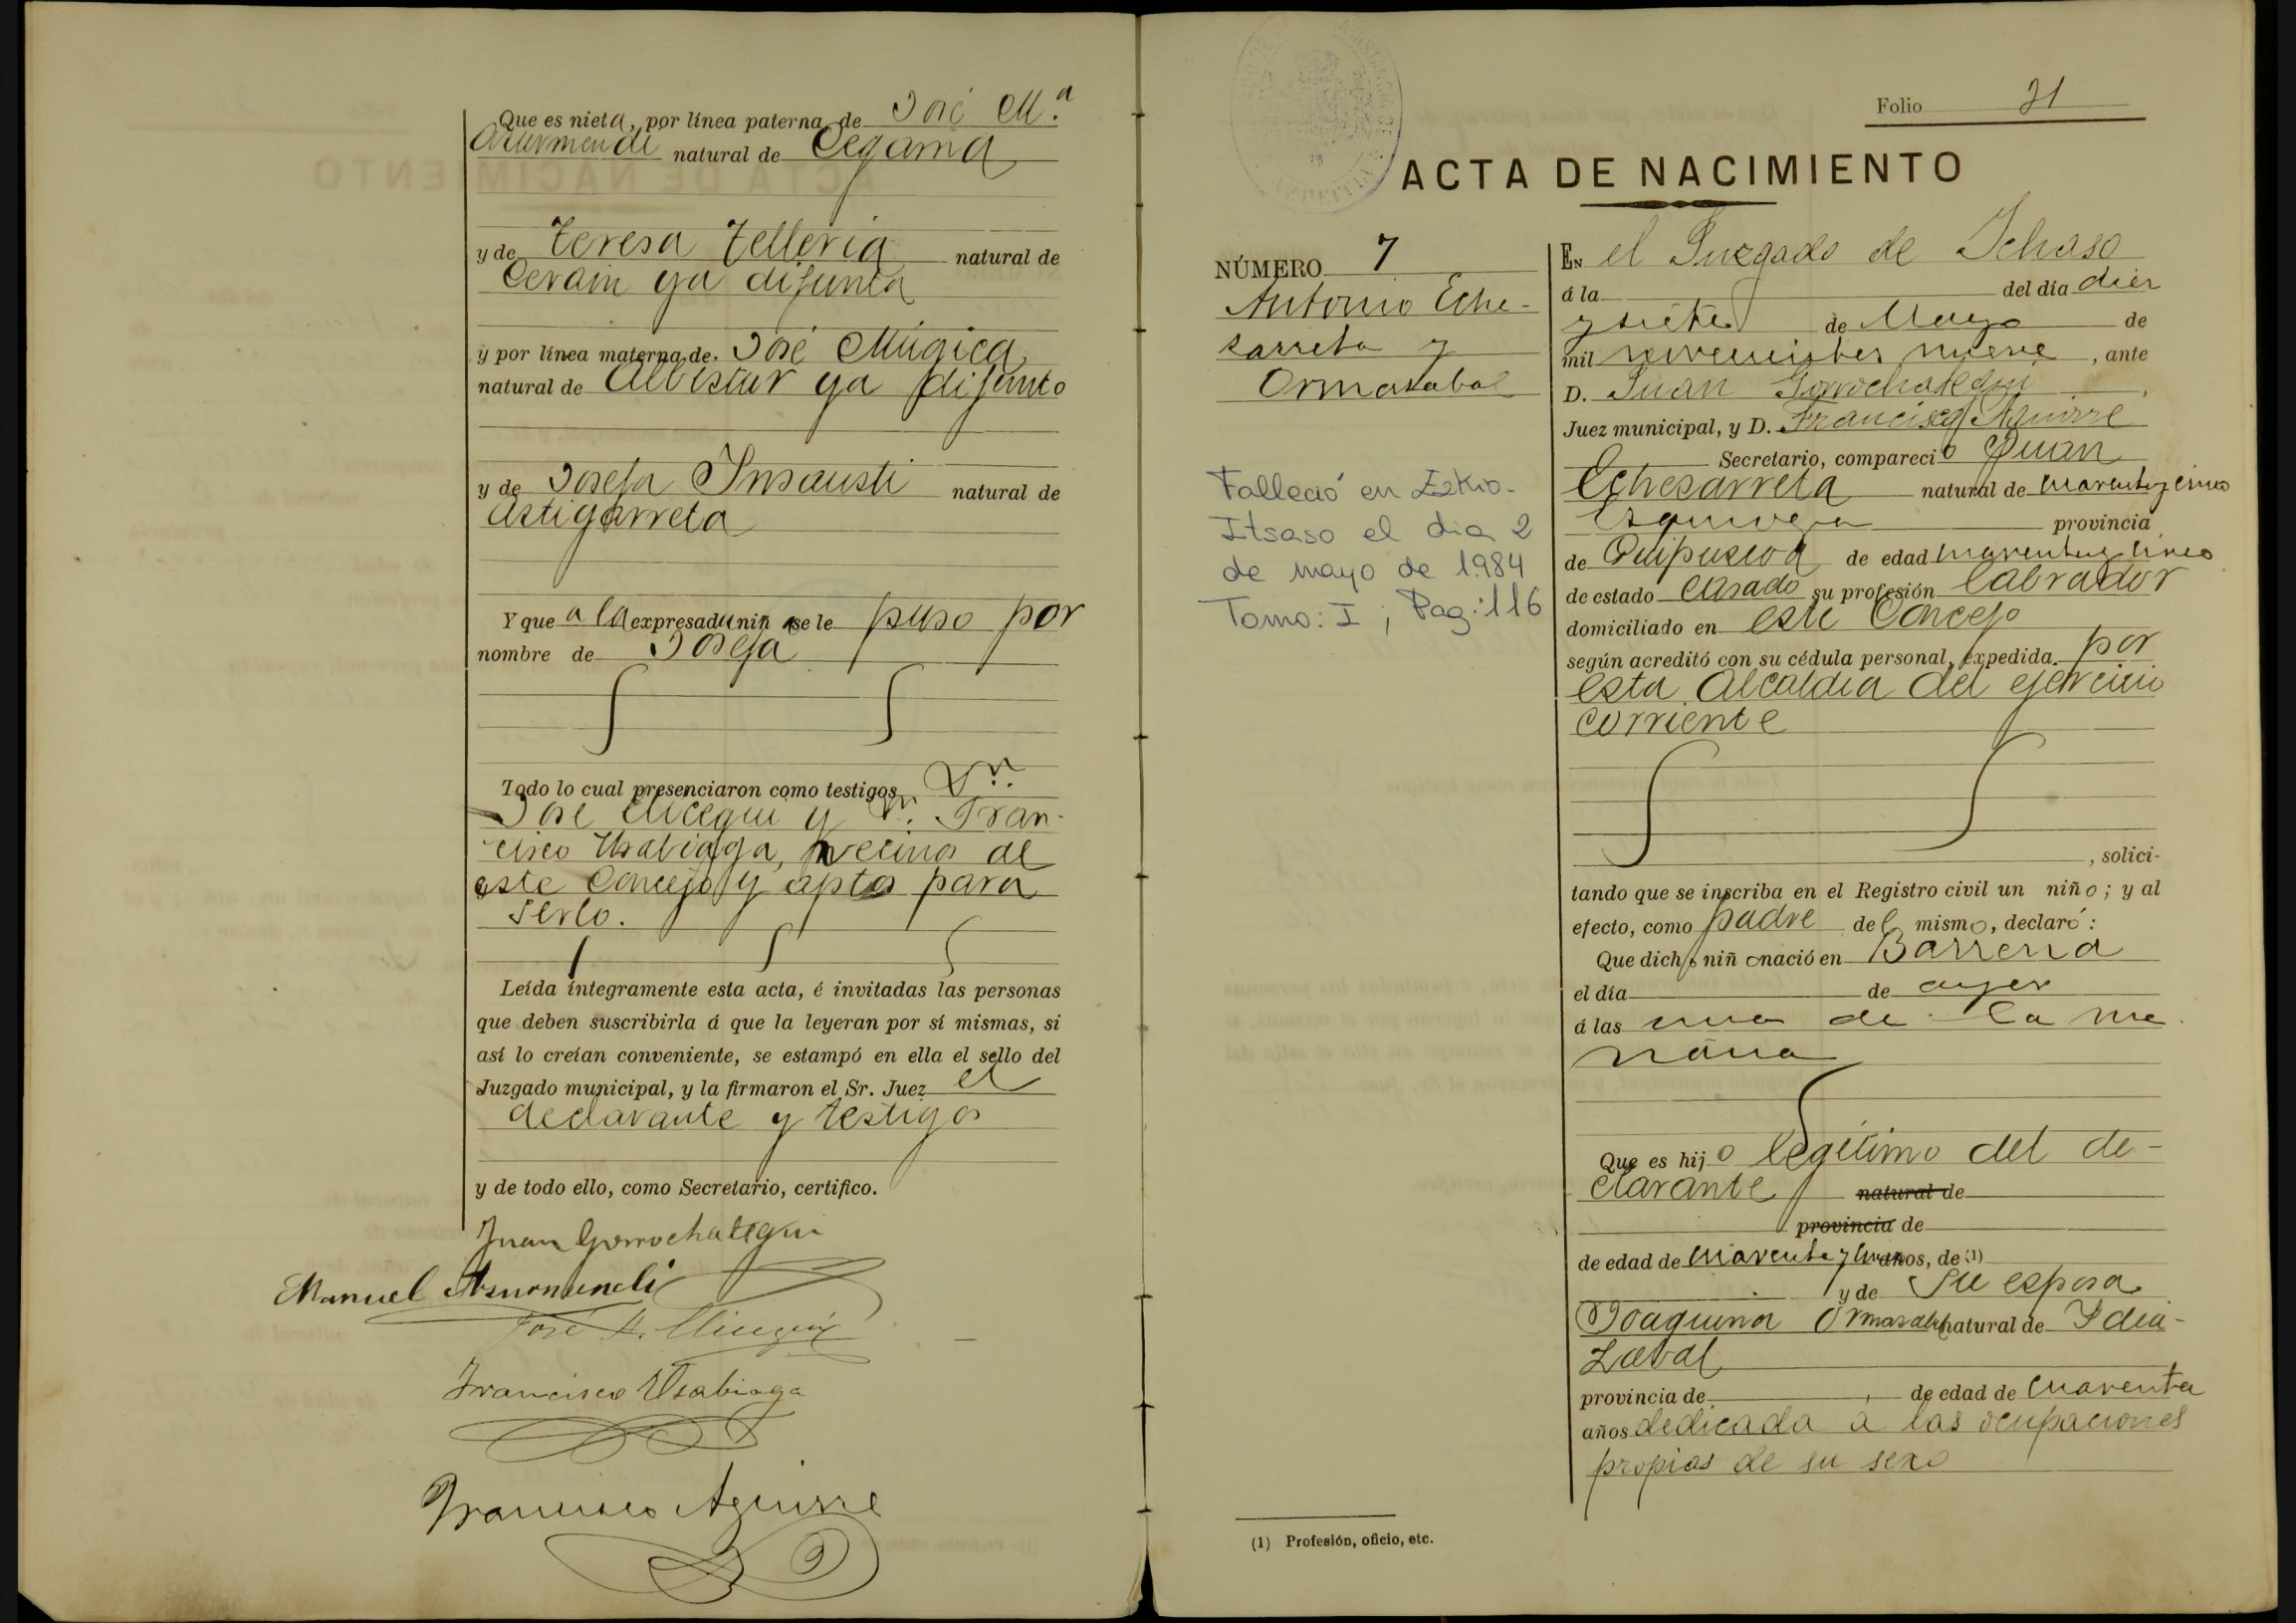 Que es nieta, por línea paterna, de José M.ª
Aturmendi natural de Cegama
y de Teresa Telleria natural de
Cerain ya difunta
y por línea materna, de José Múgica
natural de Albistur ya difunto
y de Josefa Insausti natural de
Astigarreta
Y que a la expresada niña se le puso por
nombre de Josefa
Todo lo cual presenciaron como testigos Dn.
José Elicegui y Dn. Fran-
cisco Usabiaga, vecinos de
este Concejo y aptos para
serlo.
Leída íntegramente esta acta, é invitadas las personas
que deben suscribirla á que la leyeran por sí mismas, si
así lo creían conveniente, se estampó en ella el sello del
Juzgado municipal, y la firmaron el Sr. Juez el
declarante y testigos
y de todo ello, como Secretario, certifico.
Juan Gorrochategui
Manuel
Francisco Usabiaga
Francisco Aguirre
Folio 21
ACTA DE NACIMIENTO
NÚMERO 7
Antonio Eche-
zarreta y
Ormazabal
Falleció en Ezkio-
Itsaso el dia 2
de mayo de 1.984
Tomo: I ; Pag: 116
EN el Juzgado de Ichaso
á la del día diez
y siete de Mayo de
mil novecientos nueve, ante
D. Juan Gorrochategui,
Juez municipal, y D. Francisco Aguirre
Secretario, compareció Juan
Echezarreta natural de cuarenta y cinco
Ezquioga provincia
de Guipuzcoa de edad cuarenta y cinco
de estado casado su profesión labrador
domiciliado en este Concejo
según acreditó con su cédula personal, expedida por
esta Alcaldia del ejercicio
corriente
, solici-
tando que se inscriba en el Registro civil un niño; y al
efecto, como padre del mismo, declaró:
Que dicho niño nació en Barrena
el día de ayer
á las una de la ma
ñana
Que es hijo legitimo del de-
clarante natural de
provincia de
de edad de cuarenta y años, de (1)
y de su esposa
Joaquina Ormazabal natural de Idia-
zabal
provincia de , de edad de cuarenta
años dedicada a las ocupaciones
propias de su sexo
(1) Profesión, oficio, etc.